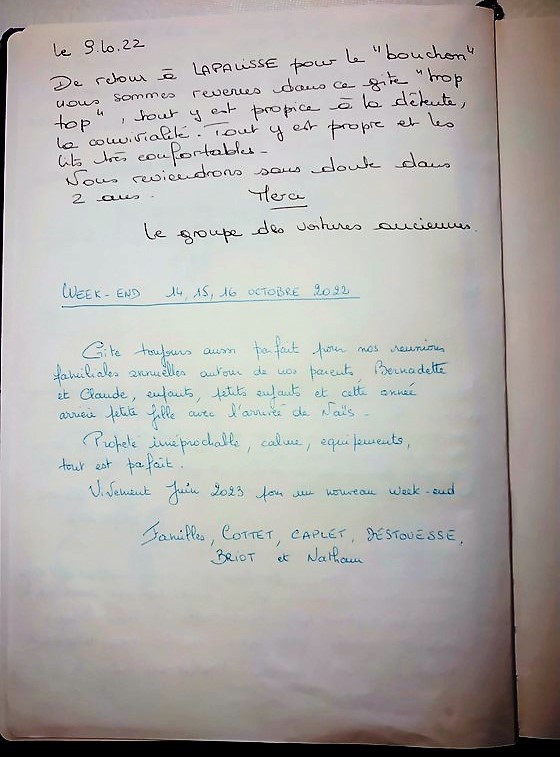 le 9.10.22
De retour à LAPALISSE pour le "bouchon"
nous sommes revenus dans ce gite "trop
top", tout y est propice à la détente,
la convivialité. Tout y est propre et les
lits très confortables.
Nous reviendrons sans doute dans
2 ans. Merci
Le groupe des voitures anciennes.
WEEK-END 14, 15, 16 OCTOBRE 2022
Gite toujours aussi parfait pour nos reunions
familiales annuelles autour de nos parents, Bernadette
et Claude, enfants, petits enfants et cette année
arrière petite fille avec l'arrivée de Naïs.
Propreté irréprochable, calme, equipements,
tout est parfait.
Vivement Juin 2023 pour un nouveau week-end
Familles, COTTET, CAPLET, DESTOUESSE,
BRIOT et Nathan